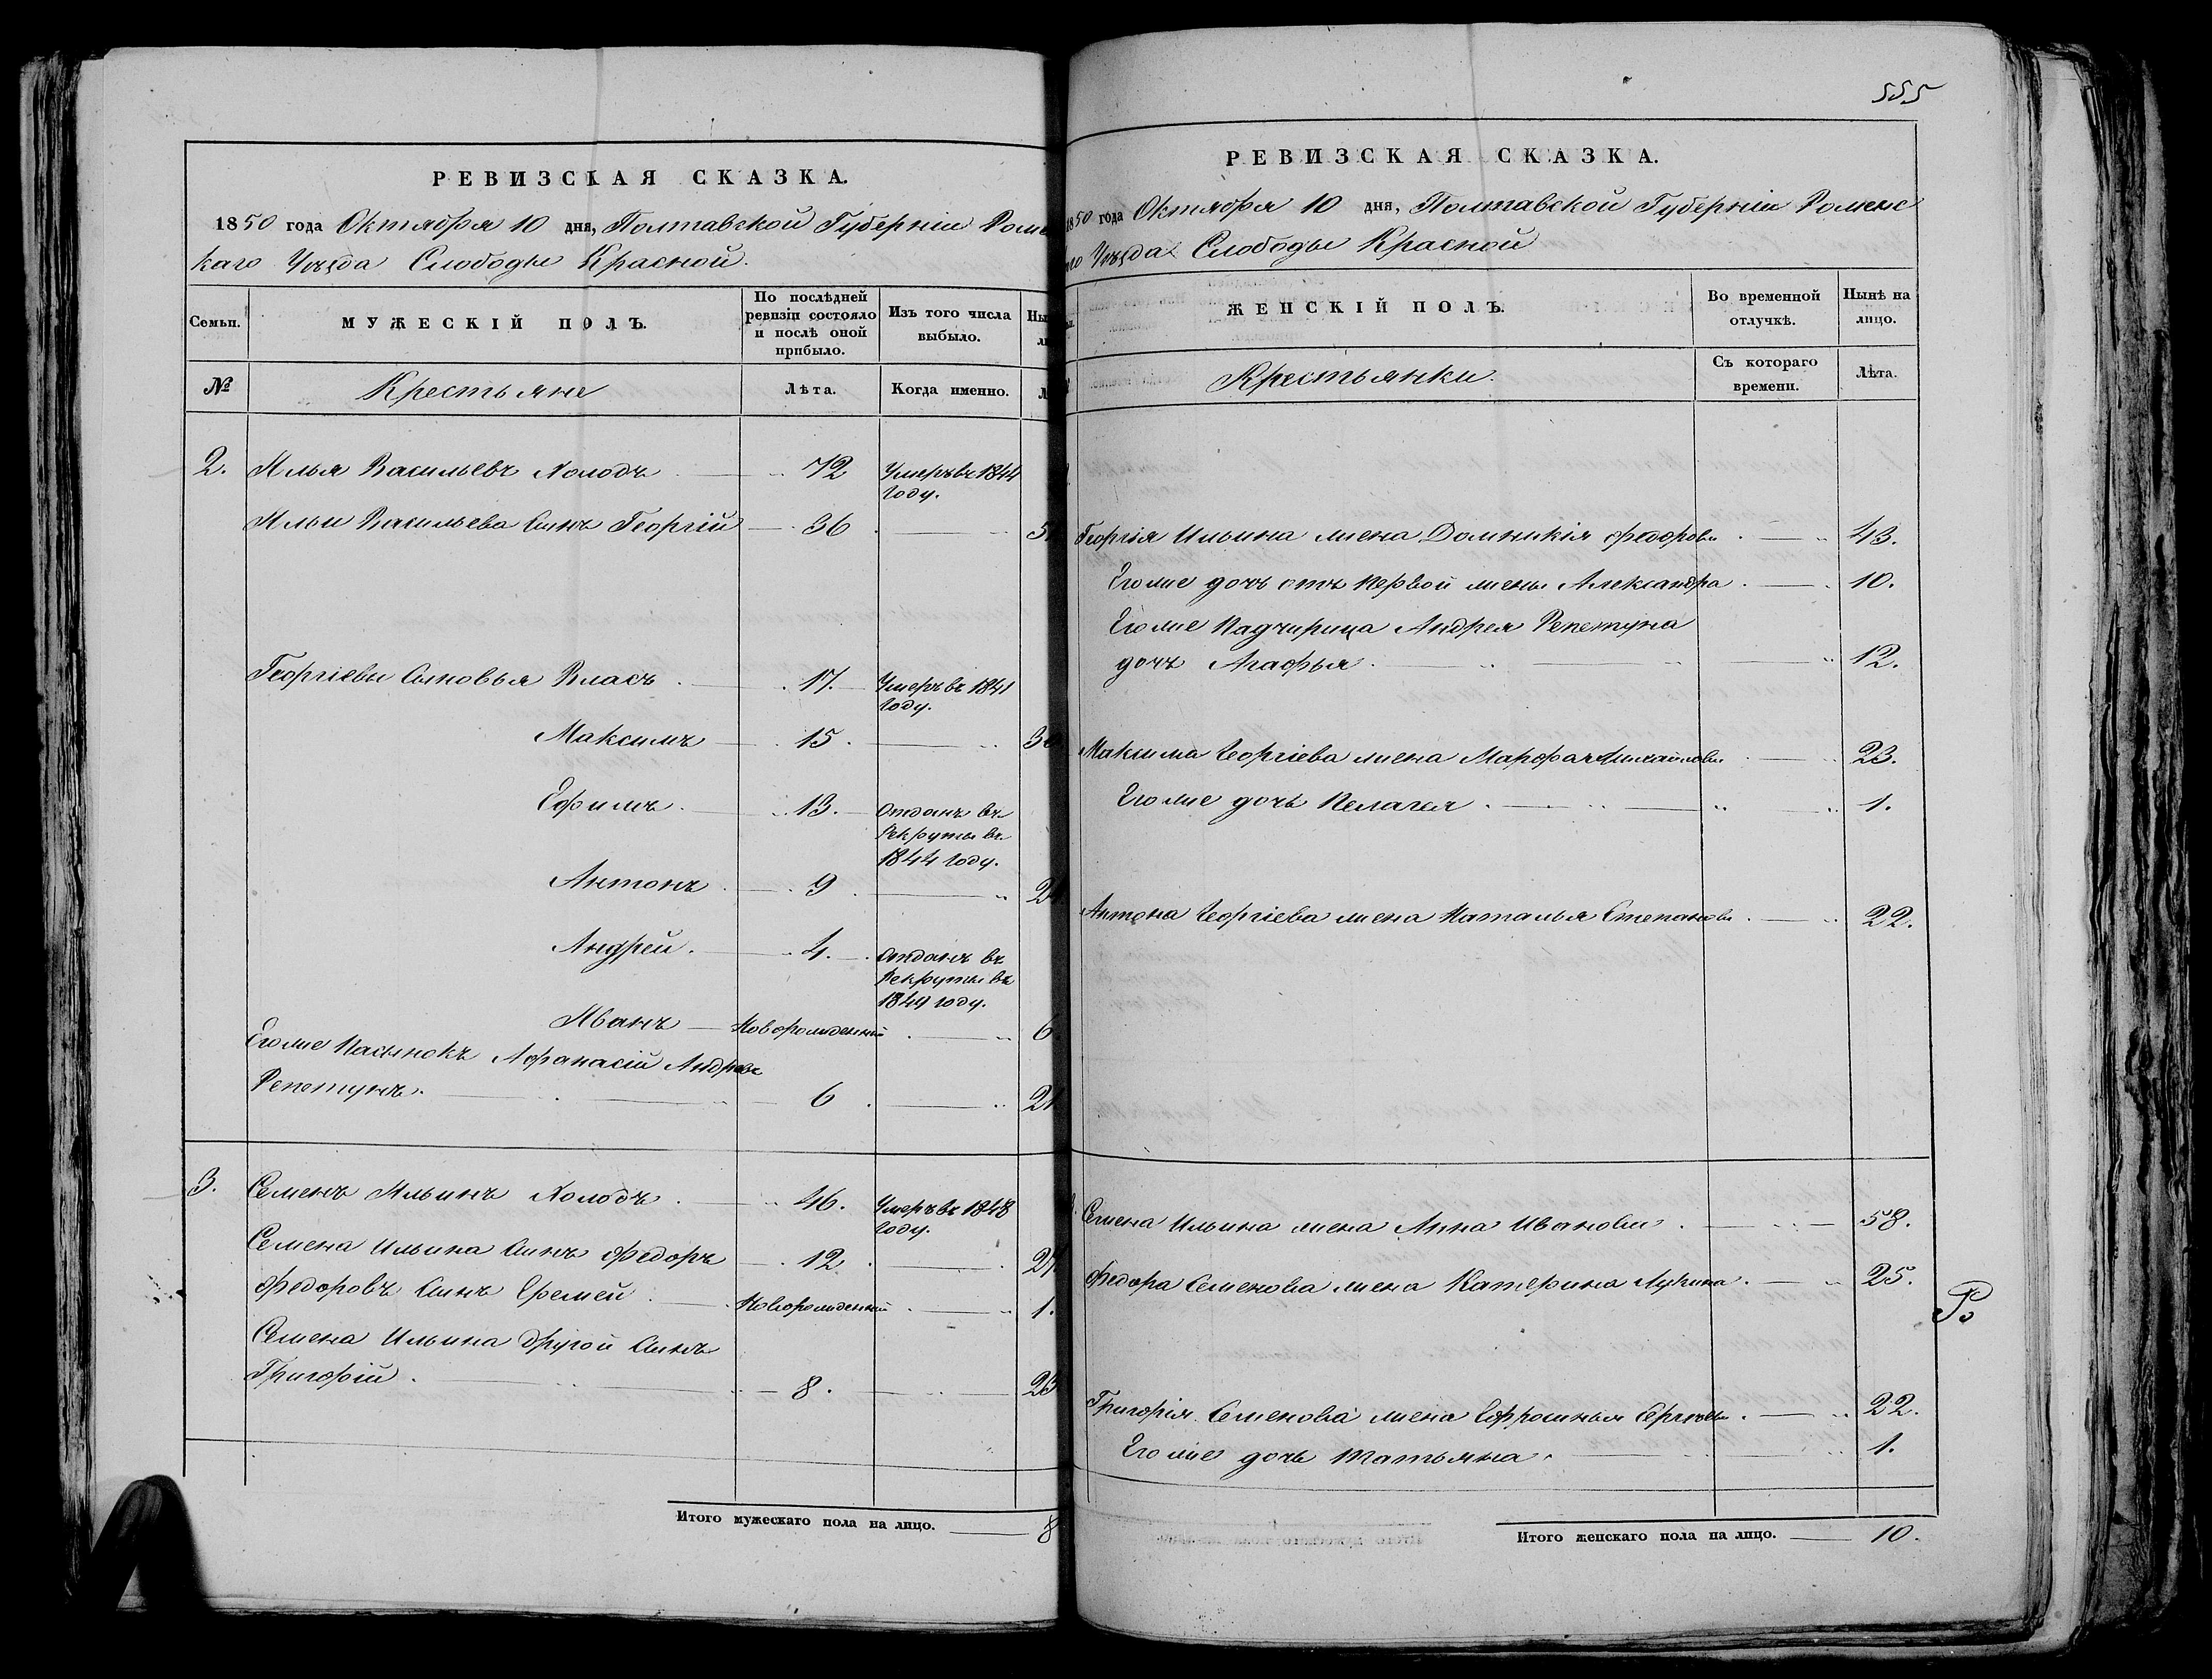 РЕВИЗСКАЯ СКАЗКА.
1850 года Октября 10 дня, Полтавской Губерніи Роме
каго Уѣзда Слободы Красной.
Семьи.
МУЖЕСКІЙ ПОЛЪ.
По послѣдней
ревизіи состояло
и послѣ оной
прибыло.
Изъ того числа
выбыло.
№
Крестьяне
Лѣта.
Когда именно.
2. Илья Васильевъ Холодъ 72 Умеръ въ 1844
году.
Ильи Васильева Сынъ Георгій 36
Георгіевы Сыновья Власъ 17. Умеръ въ 1841
году.
Максимъ 15.
Ефимъ. 13. Отданъ въ
Рекруты въ
1844 году.
Антонъ 9
Андрей. 4. Отданъ въ
Рекруты въ
1849 году.
Иванъ Новорожденный 6
Его же Пасынокъ Афанасій Андреевъ
Репетунъ. 6 21
3. Семенъ Ильинъ Холодъ 46. Умеръ въ 1848
году.
Семена Ильина Сынъ Федоръ 12 27
Федоровъ Сынъ Еремей Новорожденный 1.
Семена Ильина другой Сынъ
Григорій 8. 23
Итого мужескаго пола на лицо. 8
555
РЕВИЗСКАЯ СКАЗКА.
1850 года Октября 10 дня, Полтавской Губерніи Роменс
Уѣзда Слободы Красной
ЖЕНСКІЙ ПОЛЪ.
Во временной
отлучкѣ.
Нынѣ на
лицо.
Крестьянки.
Съ котораго
времени.
Лѣта.
Георгія Ильина жена Домникія Федоровы 43.
Его же дочь отъ первой жены Александра 10.
Его же Падчирица Андрея Репетуна
дочь Агафья. 12.
Максима Георгіева жена Марфа Михайловы 23.
Его же дочь Пелагея 1.
Антона Георгіева жена Наталья Степановы 22.
Семена Ильина жена Анна Ивановы 58.
Федора Семенова жена Катерина 25.
Григорія Семенова жена Ефросинья Сергѣевы 22.
Его же дочь Татьяна 1.
Итого женскаго пола на лицо. 10.